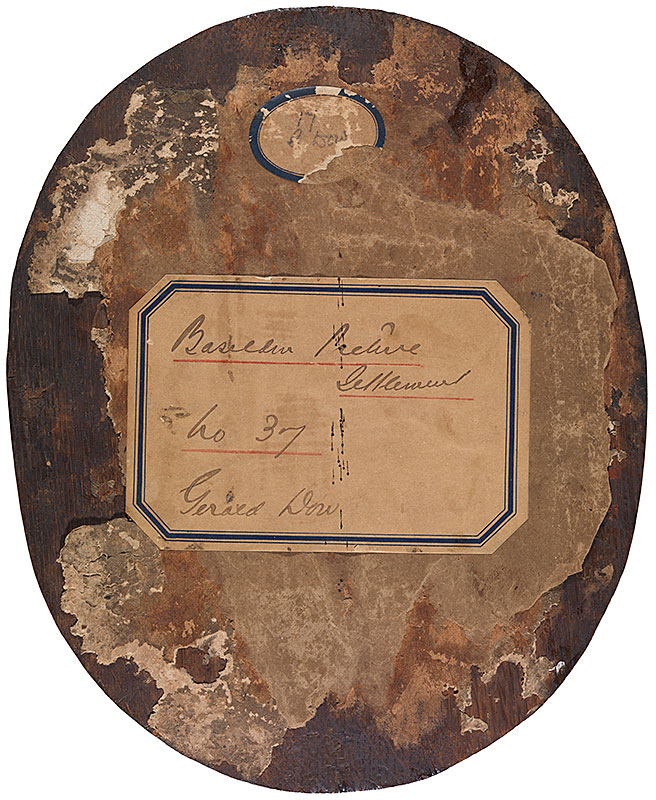 17
G. Dow
Basildon Picture
Settlement
No 37
Gerard Dow